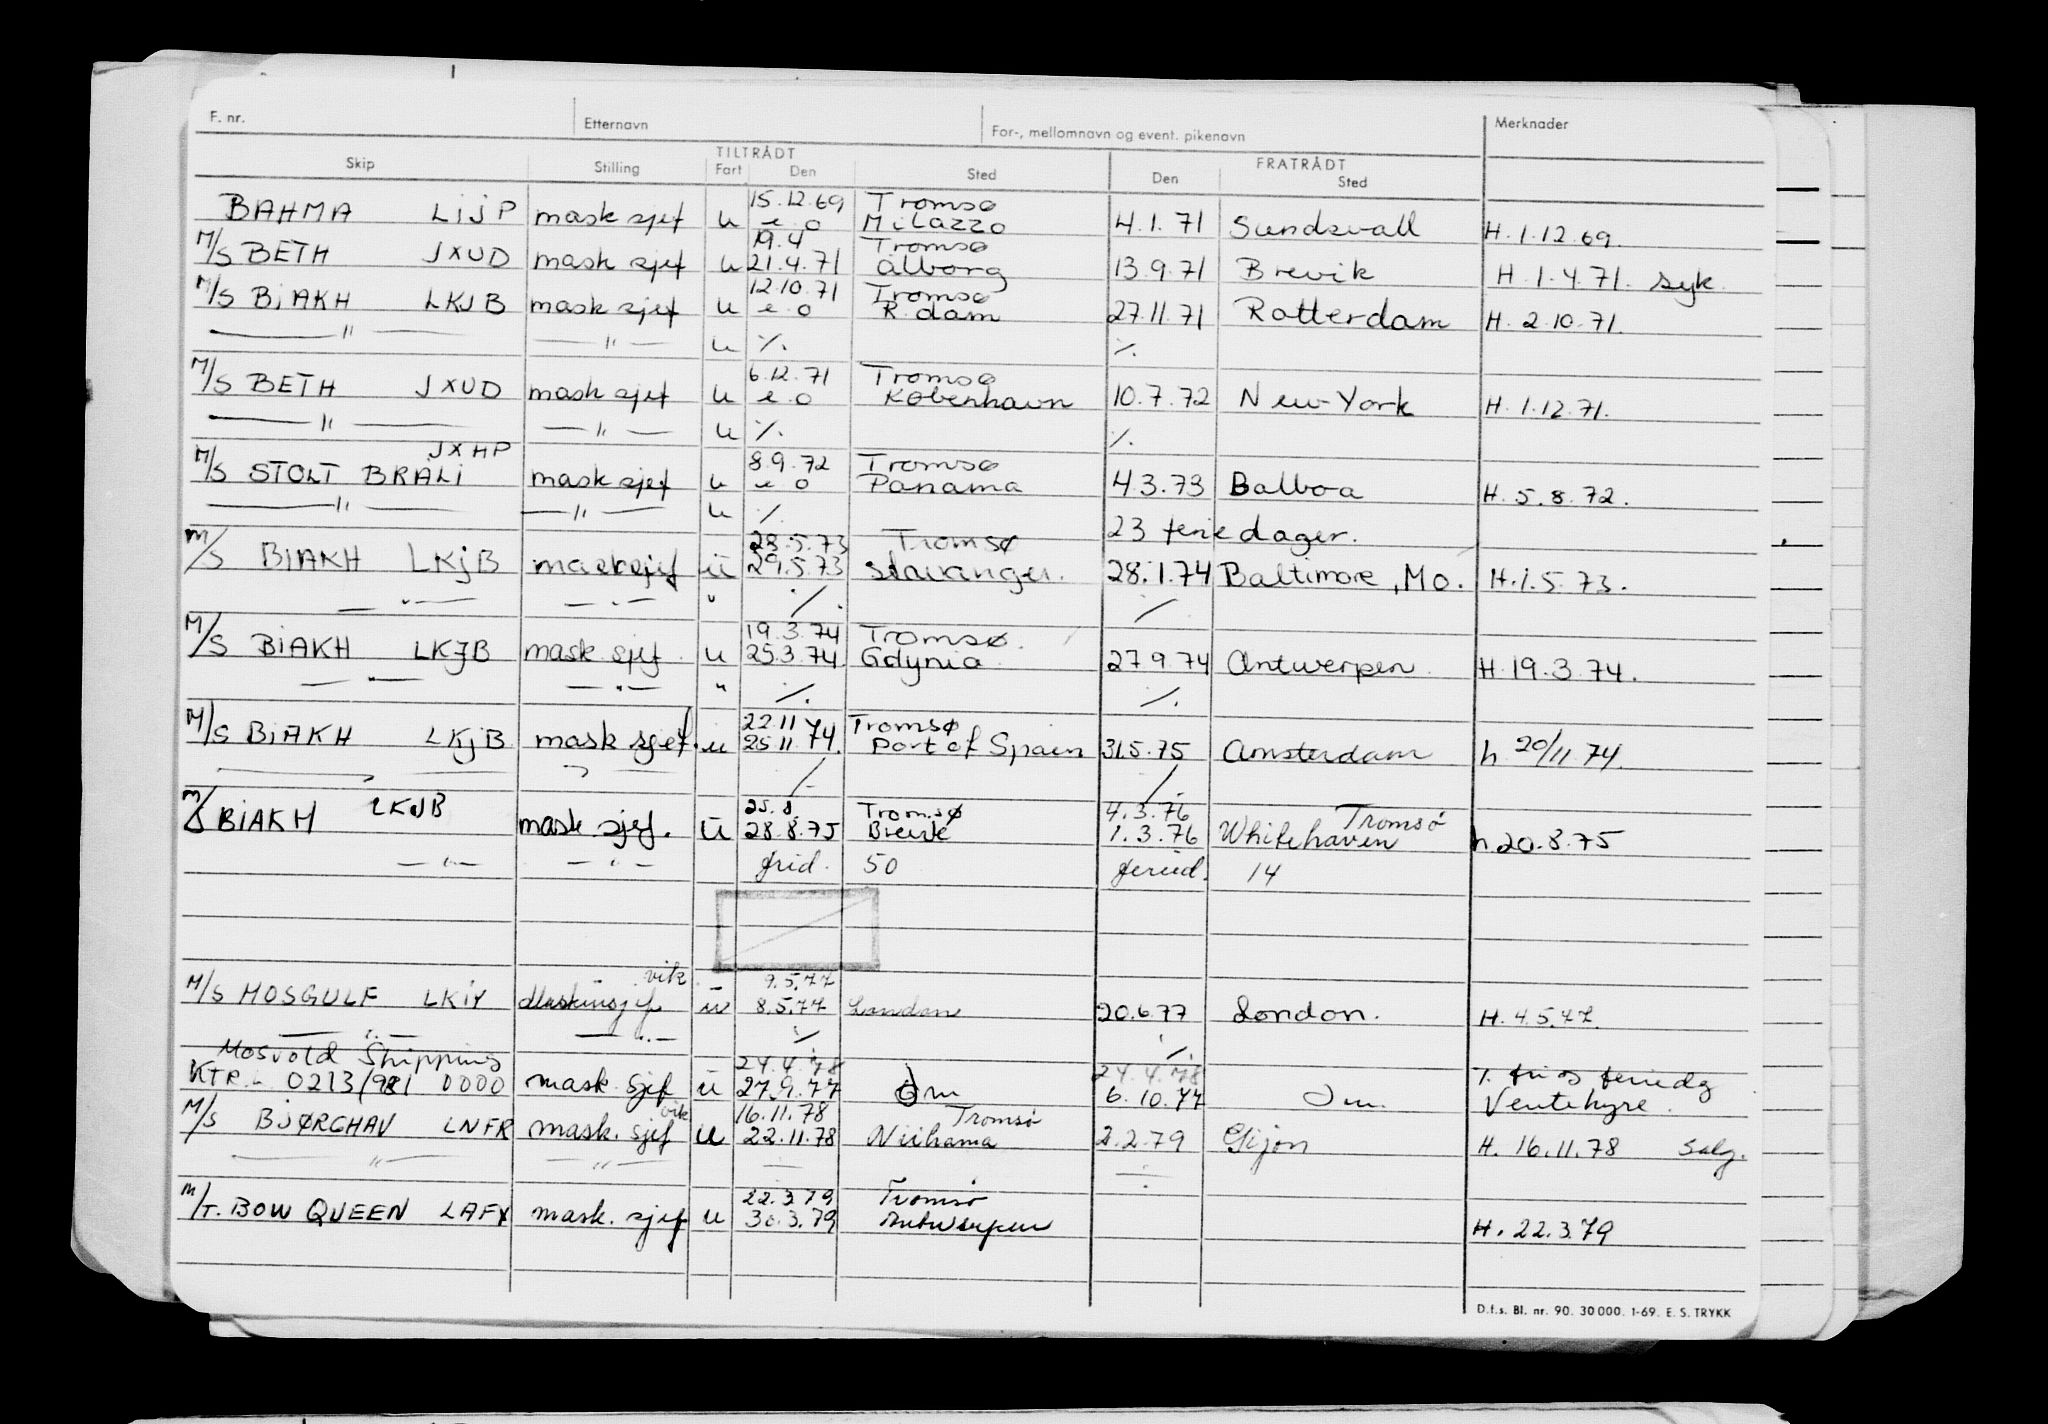 F. nr. Etternavn For-, mellomnavn og event. pikenavn Merknader
TILTRÅDT FRATRÅDT
Skip Stilling Fart Den Sted Den Sted
15.12.69 Tromsø
BAHMA LIJP mask sjef u e.o Milazzo 4.1.71 Sundsvall H.1.12.69.
19.4 Tromsø
M/S BETH JXUD mask sjef u 21.4.71 Ålborg 13.9.71 Brevik H.1.4.71. syk.
12.10.71 Tromsø
M/S BIAKH LKJB mask sjef u e.o R.dam 27.11.71 Rotterdam H. 2.10.71.
— " — — " — u ·/. ·/.
6.12.71 Tromsø
M/S BETH JXUD mask sjef u e.o København 10.7.72 New-York H.1.12.71.
— " — — " — u ·/. ·/.
JXHP 8.9.72 Tromsø
M/S STOLT BRALI mask sjef u e.o Panama 4.3.73 Balboa H.5.8.72.
— " — — " — u ·/. 23 feriedager.
28.5.73 Tromsø
M/S BIAKH LKJB masksjef ü 29.5.73 Stavanger. 28.1.74 Baltimore, MO. H.1.5.73.
— " — — " — " ·/. ·/.
19.3.74 Tromsø.
M/S BIAKH LKJB mask sjef u 25.3.74 Gdynia 27.9.74 Antwerpen H.19.3.74.
— " — — " — " ·/. ·/.
22.11 Tromsø
M/S BIAKH LKJB mask sjef. u 25.11.74. Port of Spain 31.5.75 Amsterdam h 20/11.74.
·/. ·/.
25.8. Tromsø 4.3.76 Tromsø
M/S BIAKH LKJB mask sjef. ü 28.8.75 Brevik 1.3.76 Whitehaven h 20.8.75
— " — — " — frid. 50 feried. 14
vik 9.5.77
M/S MOSGULF LKIY Maskinsjef u 8.5.77 London 20.6.77 London. H.4.5.77.
— " — — " — ·/. ·/.
Mosvold Shipping 24.4.78 24.4.78
KTR. 0213/981 0000 mask. sjef ü 27.9.77 Om 6.10.77 Om. Ventehyre.
vik 16.11.78 Tromsø
M/S BJØRGHAV LNFR mask. sjef u 22.11.78 Niihama 2.2.79 Gijon H. 16.11.78 salg.
— " — — " — ÷ ÷
22.3.79 Tromsø
M/T. BOW QUEEN LAFX mask. sjef u 30.3.79 Antwerpen H. 22.3.79
D.f.s. Bl. nr. 90. 30000. 1-69. E. S. TRYKK